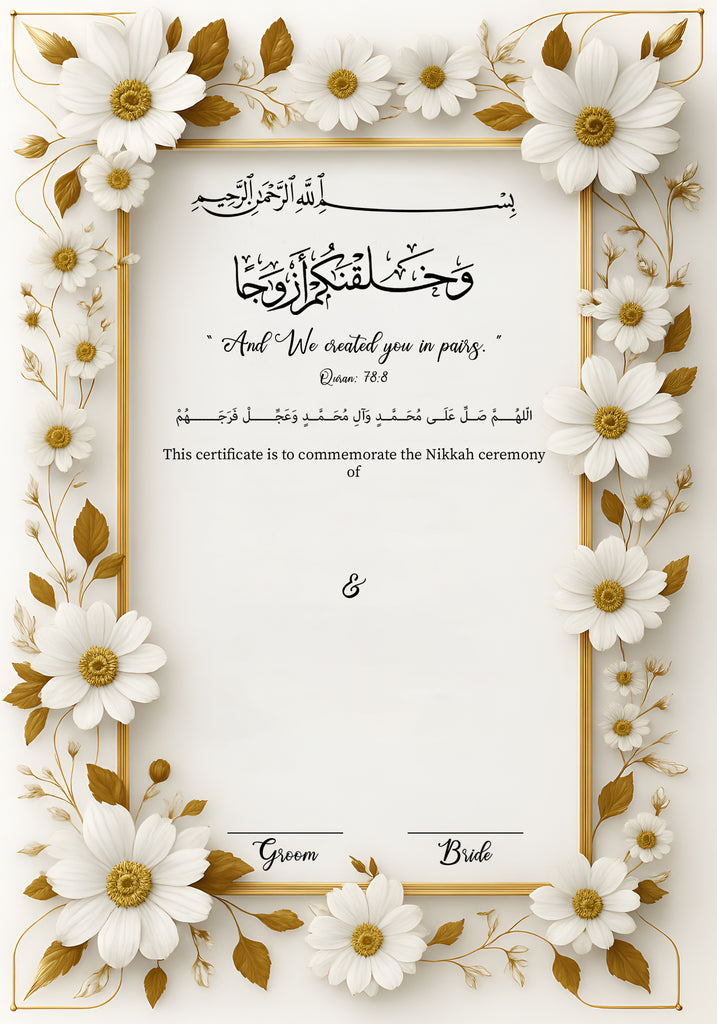 بِسْمِ اللَّهِ الرَّحْمَٰنِ الرَّحِيمِ
وَخَلَقْنَكُمْ أَزْوَجًا
“ And We created you in pairs. ”
Quran: 78:8
اللهُـــمَّ صَــلِّ عَلَــى مُحَــمَّــدٍ وَآلِ مُحَــمَّــدٍ وَعَجِّــــلْ فَرَجَــــــهُمْ
This certificate is to commemorate the Nikkah ceremony
of
&
Groom Bride